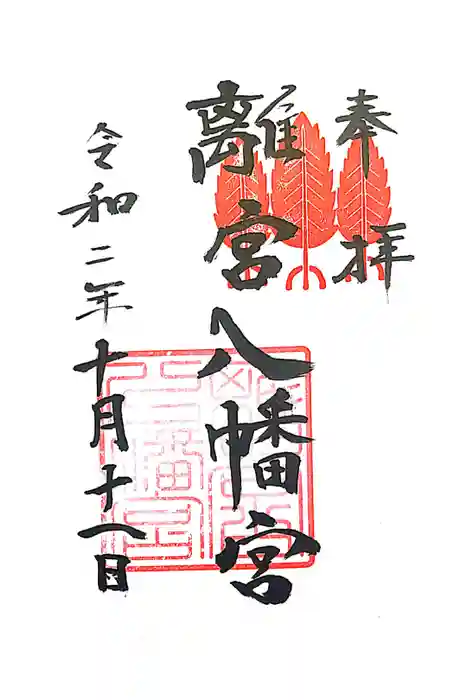 奉拝
離宮八幡宮
令和二年十月十一日